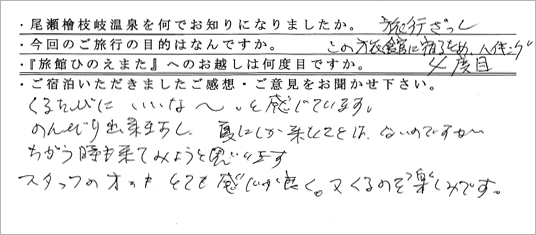 ・尾瀬檜枝岐温泉を何でお知りになりましたか。 旅行ざっし
・今回のご旅行の目的はなんですか。 この旅館に宿るため、ハイキング
・『旅館ひのえまた』へのお越しは何度目ですか。 4度目
・ご宿泊いただきましたご感想・ご意見をお聞かせ下さい。
くるたびに いいな〜。と感じています。
のんびり出来ますし、夏にしか来たことは、ないのですが〜
ちがう時も来てみようと思います
スタッフの方々 とても感じが良く。又くるのを楽しみです。